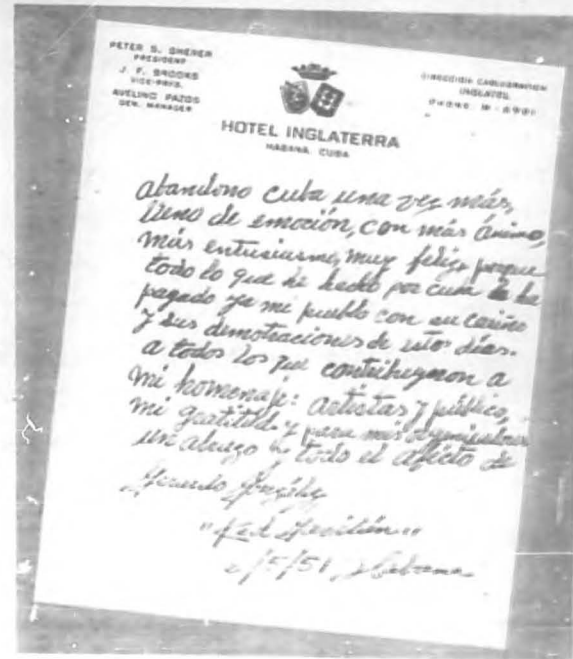 PETER S. SHERER
PRESIDENT
J. F. BROOKS
VICE-PRES.
AVELINO PAZOS
GEN. MANAGER
HOTEL INGLATERRA
HABANA, CUBA
abandono Cuba una vez más,
lleno de emoción, con más ánimo,
más entusiasmo, muy feliz porque
todo lo que he hecho por Cuba lo ha
pagado ya mi pueblo con su cariño
y sus demotraciones de estos días.
a todos los que contribuyeron a
mi homenaje: artistas y público,
mi gratitud y para mis
un abrazo todo el afecto de
/5/51 Habana